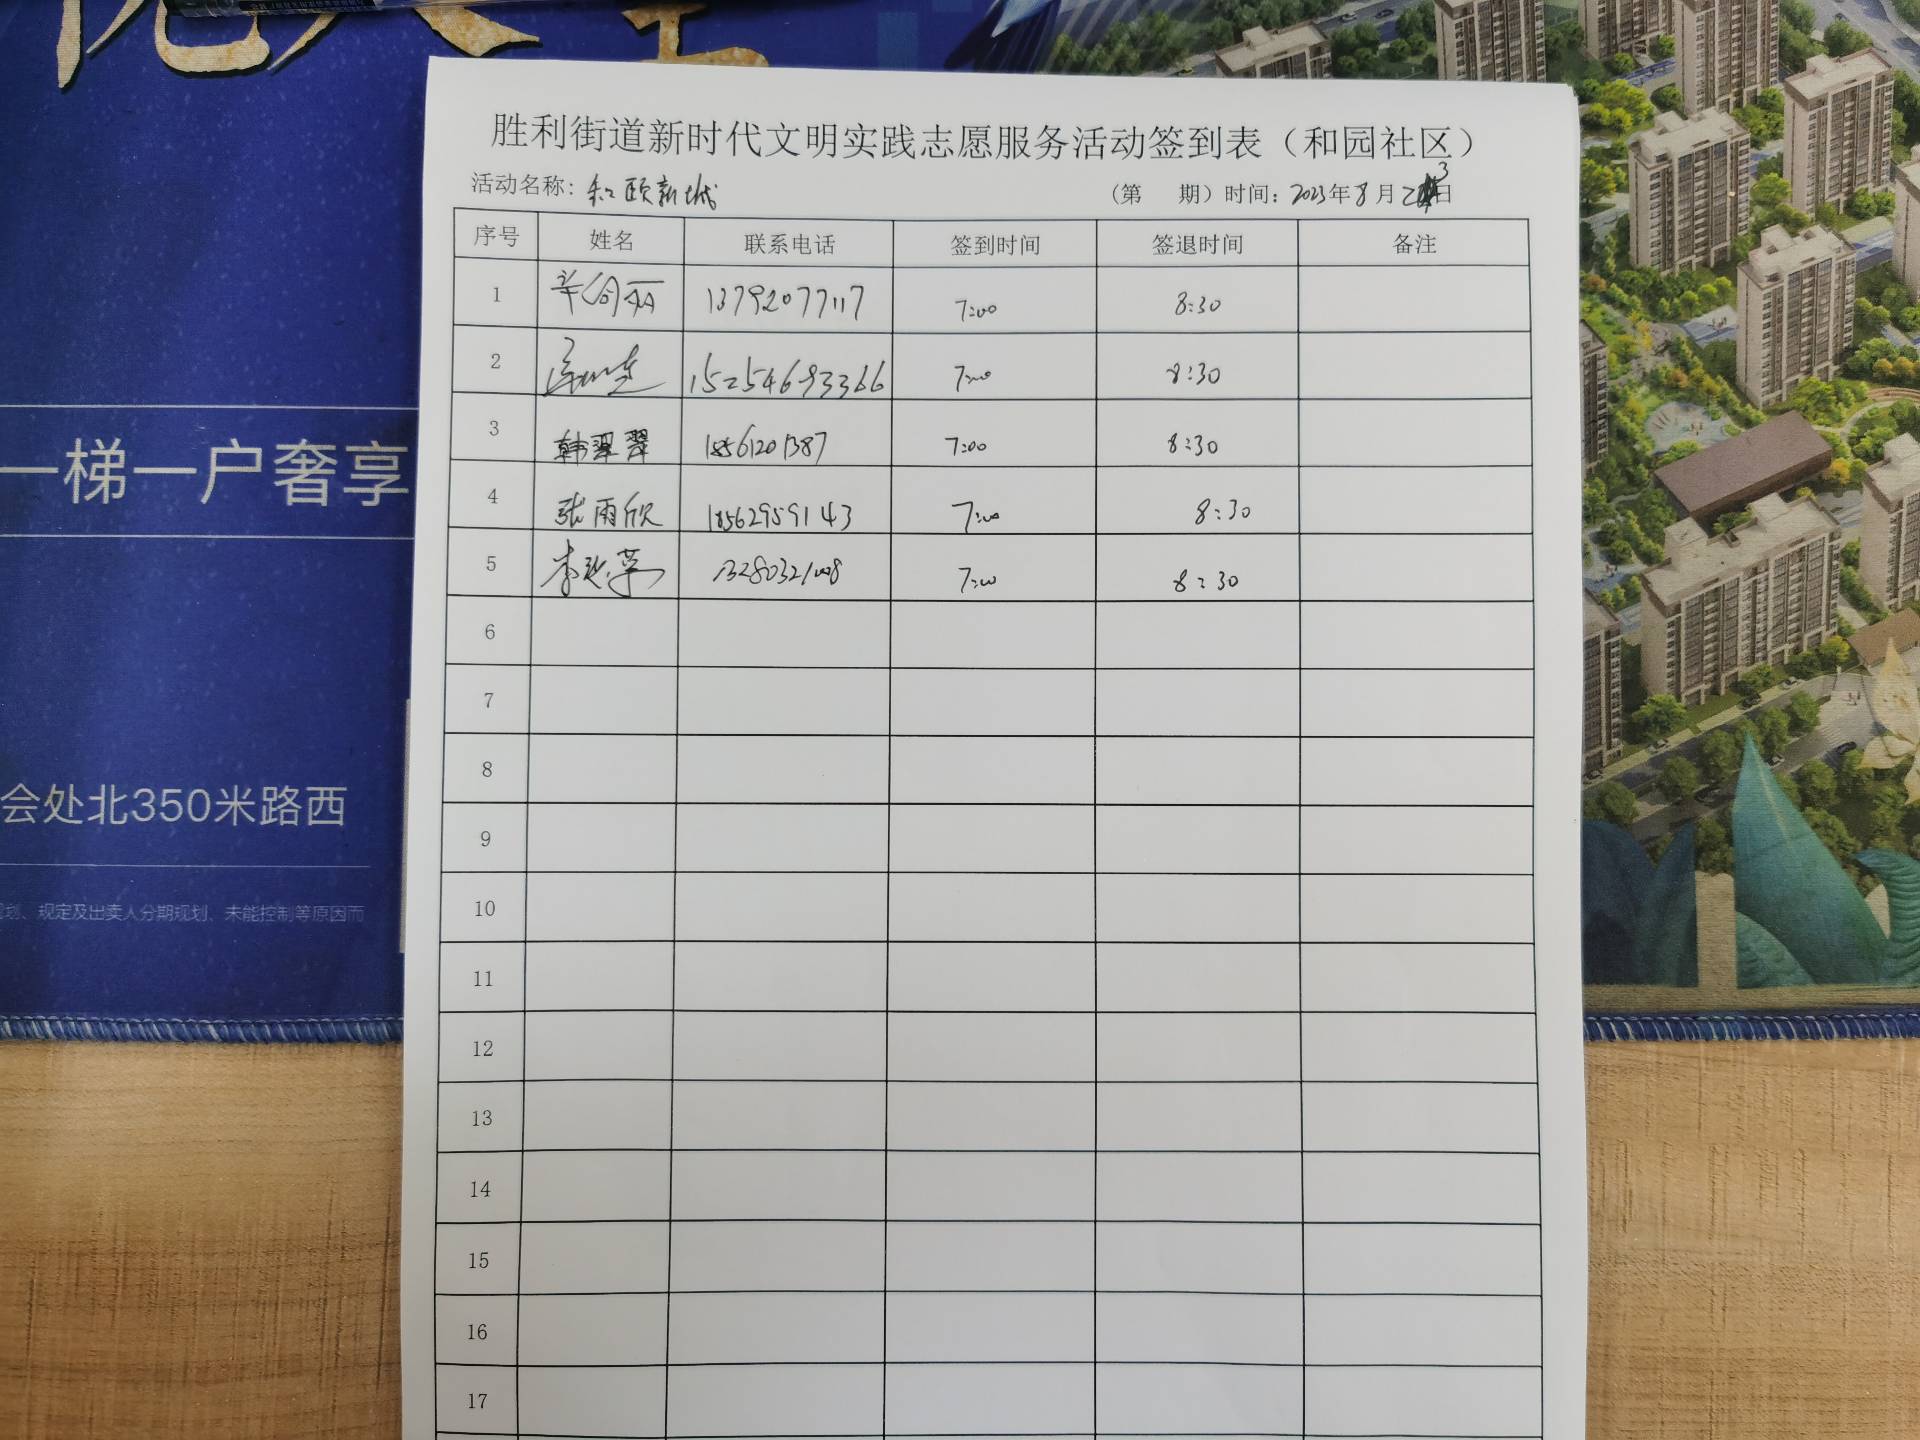 胜利街道新时代文明实践志愿服务活动签到表（和园社区）
活动名称：和颐新城 （第 期）时间：2023年8月23日
序号 姓名 联系电话 签到时间 签退时间 备注
1 13792077117 7:00 8:30
2 15254693366 7:00 8:30
3 韩翠翠 18561201387 7:00 8:30
4 张雨欣 18562959143 7:00 8:30
5 李 英 13280321008 7:00 8:30
6
7
8
9
10
11
12
13
14
15
16
17
一梯一户奢享
会处北350米路西
规划、规定及出卖人分期规划、未能控制等原因而